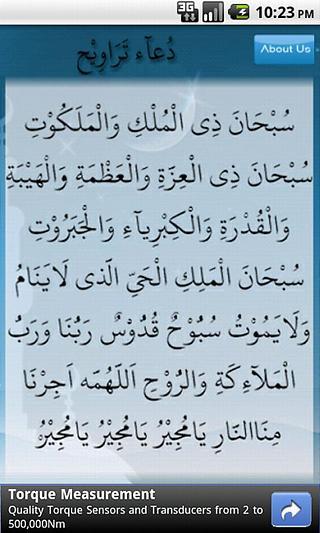 3G 10:23 PM
دُعآء تَرَاوِیْح
About Us
سُبْحَانَ ذِی الْمُلْكِ وَالْمَلَكُوْتِ
سُبْحَانَ ذِی الْعِزَّةِ وَالْعَظْمَةِ وَالْهَيْبَةِ
وَالْقُدْرَةِ وَالْكِبْرِيآءِ وَالْجَبَرُوْتِ
سُبْحَانَ الْمَلِكِ الْحَيِّ الَّذِی لَايَنَامُ
وَلَايَمُوْتُ سُبُّوْحٌ قُدُّوْسٌ رَبُّنَا وَرَبُّ
الْمَلآءِكَةِ وَالرُّوْحِ اَللهُمَّ اَجِرْنَا
مِنَاالنَارِ يَامُجِيْرُ يَامُجِيْرُ يَامُجِيْرُ
Torque Measurement
Quality Torque Sensors and Transducers from 2 to
500,000Nm